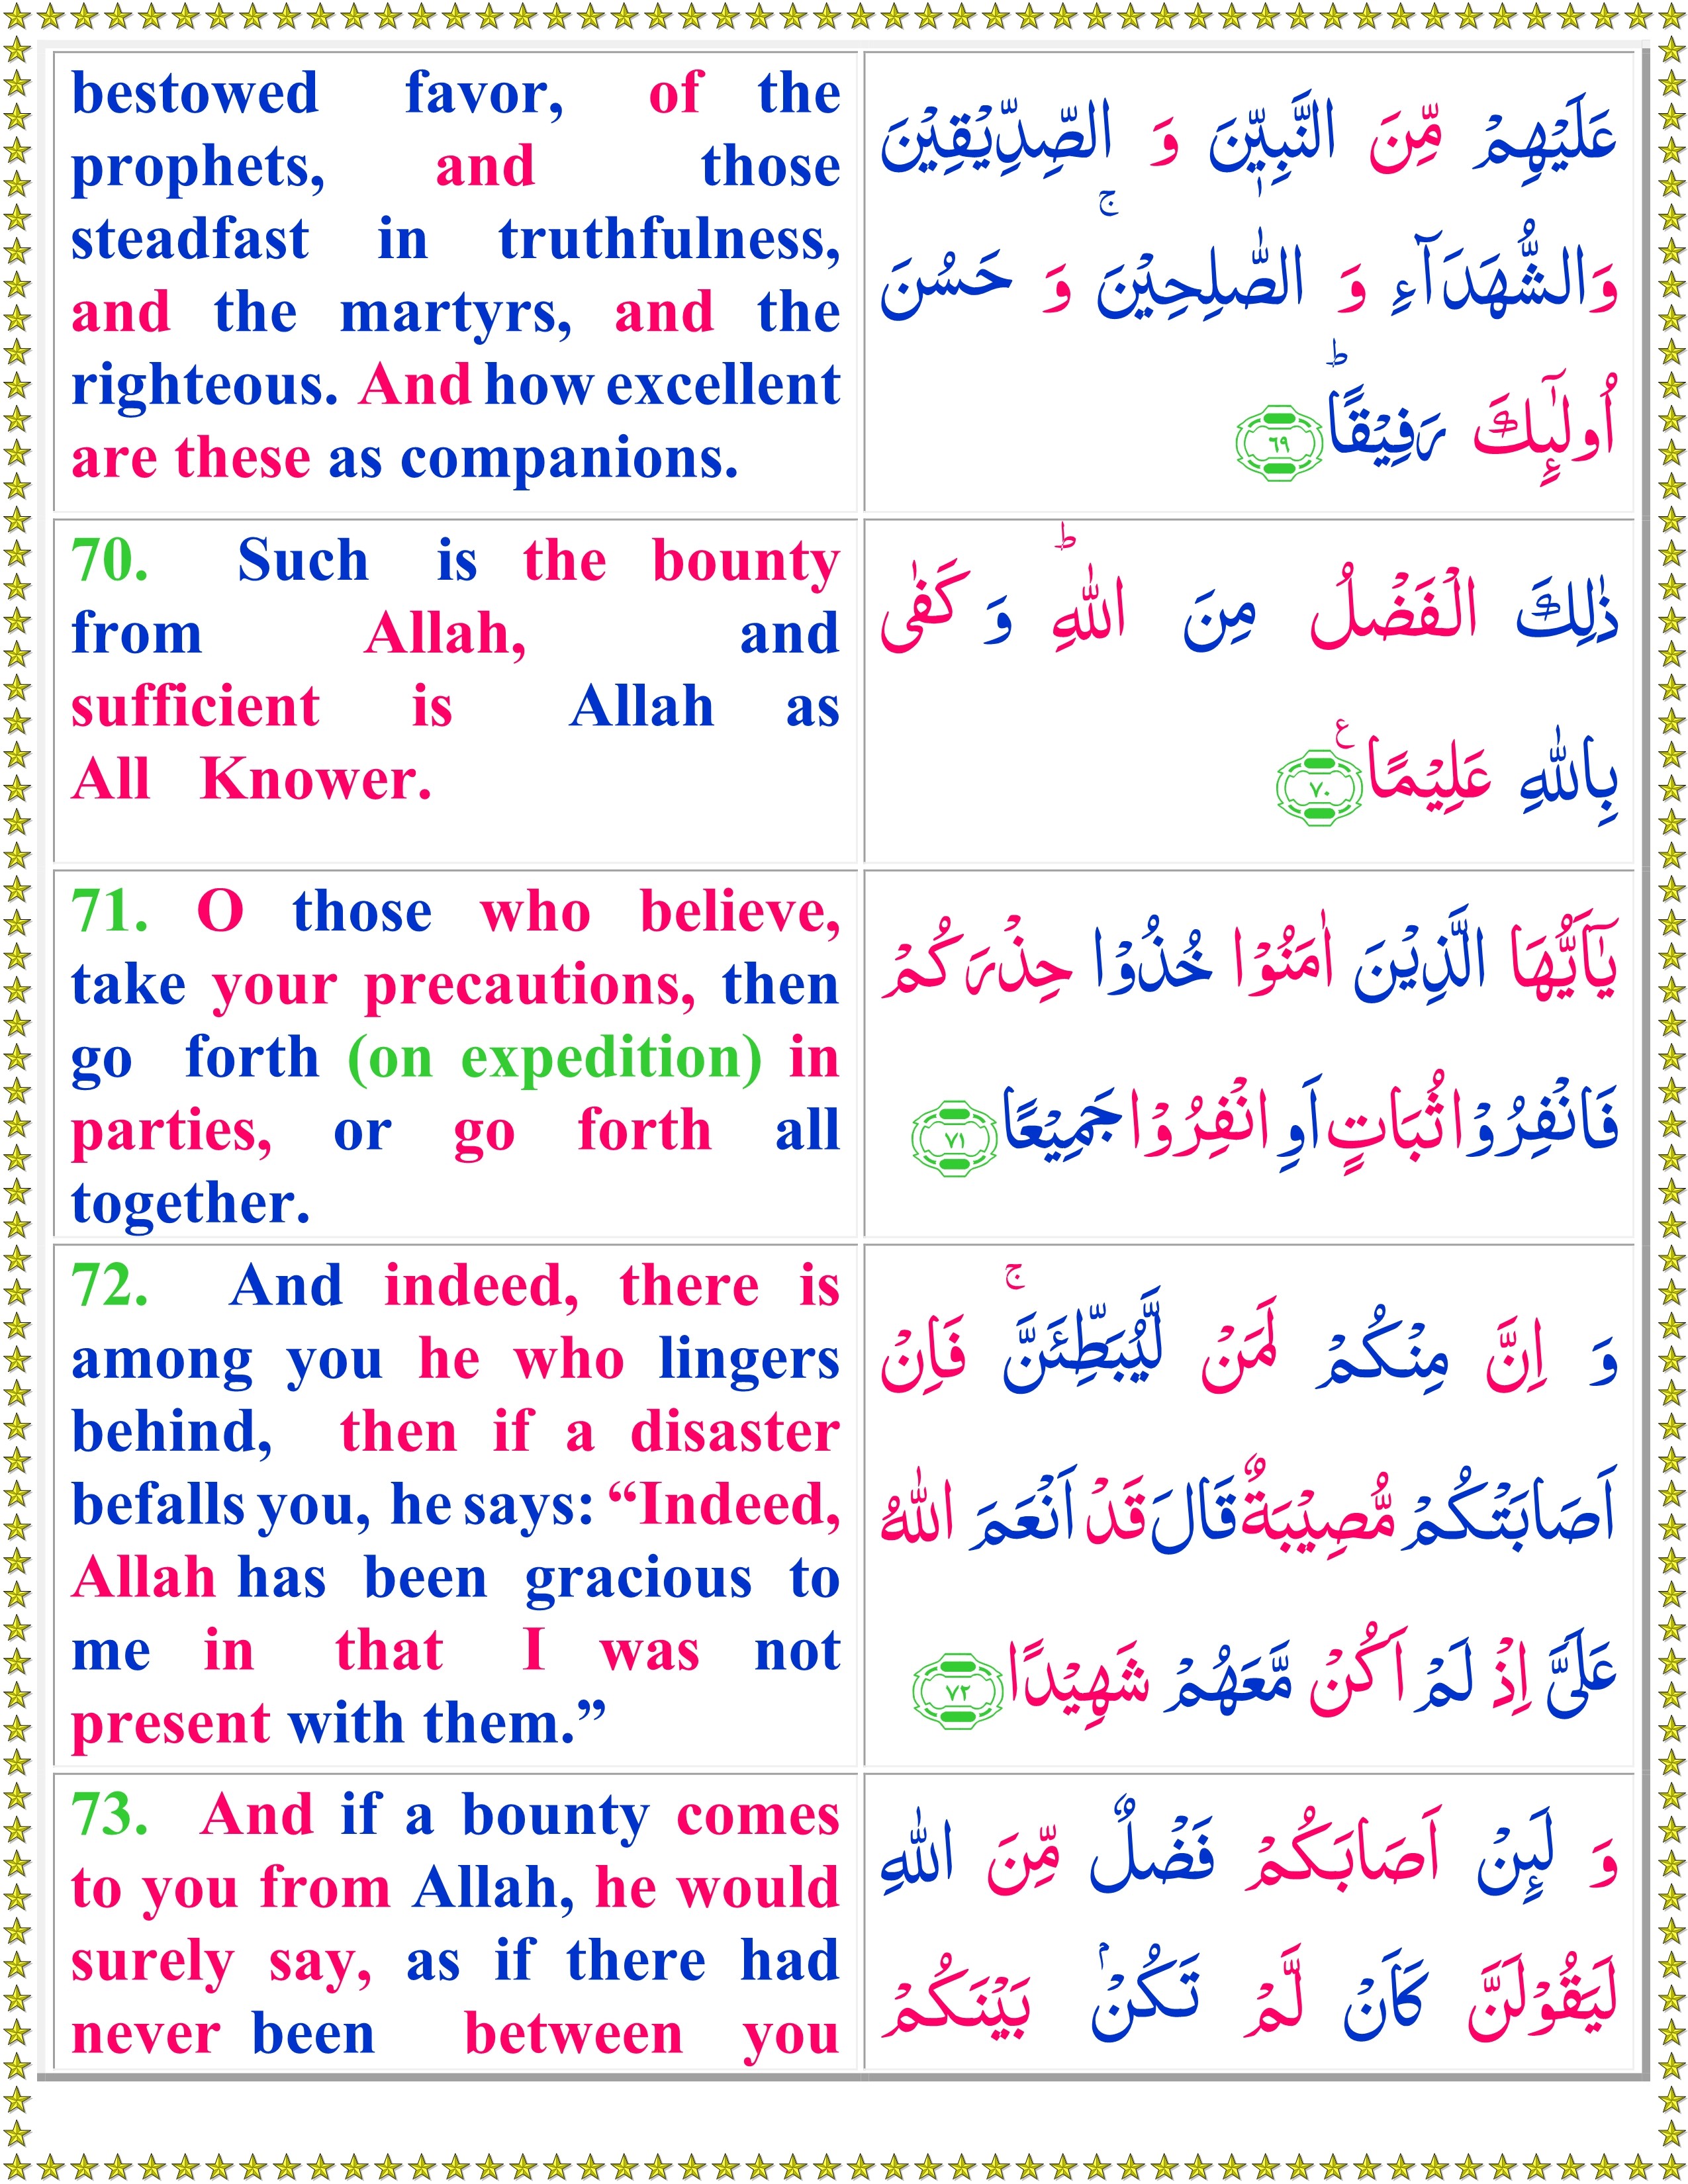 bestowed favor, of the
prophets, and those
steadfast in truthfulness,
and the martyrs, and the
righteous. And how excellent
are these as companions.
عَلَيْهِمْ مِّنَ النَّبِيّٖنَ وَ الصِّدِّيْقِيْنَ
وَالشُّهَدَآءِ وَ الصّٰلِحِيْنَ ۚ وَ حَسُنَ
اُولٰٓئِكَ رَفِيْقًا ؕ ٦٩
70. Such is the bounty
from Allah, and
sufficient is Allah as
All Knower.
ذٰلِكَ الْفَضْلُ مِنَ اللّٰهِ ؕ وَ كَفٰى
بِاللّٰهِ عَلِيْمًا ع ٧٠
71. O those who believe,
take your precautions, then
go forth (on expedition) in
parties, or go forth all
together.
يٰۤاَيُّهَا الَّذِيْنَ اٰمَنُوْا خُذُوْا حِذْرَكُمْ
فَانْفِرُوْا ثُبَاتٍ اَوِ انْفِرُوْا جَمِيْعًا ٧١
72. And indeed, there is
among you he who lingers
behind, then if a disaster
befalls you, he says: “Indeed,
Allah has been gracious to
me in that I was not
present with them.”
وَ اِنَّ مِنْكُمْ لَمَنْ لَّيُبَطِّئَنَّ ۚ فَاِنْ
اَصَابَتْكُمْ مُّصِيْبَةٌ قَالَ قَدْ اَنْعَمَ اللّٰهُ
عَلَىَّ اِذْ لَمْ اَكُنْ مَّعَهُمْ شَهِيْدًا ٧٢
73. And if a bounty comes
to you from Allah, he would
surely say, as if there had
never been between you
وَ لَئِنْ اَصَابَكُمْ فَضْلٌ مِّنَ اللّٰهِ
لَيَقُوْلَنَّ كَاَنْ لَّمْ تَكُنْۢ بَيْنَكُمْ